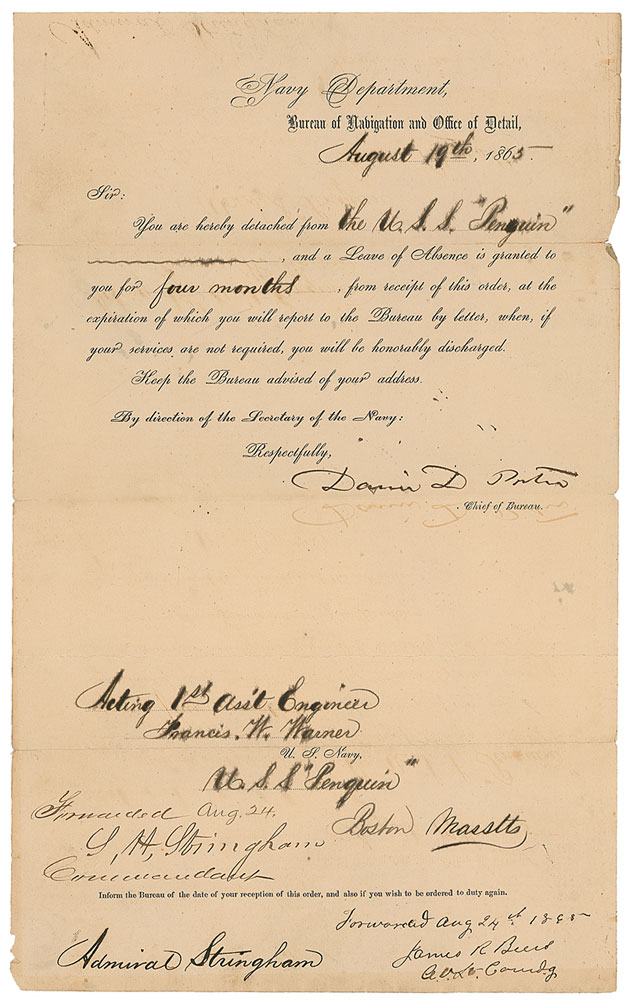 Navy Department,
Bureau of Navigation and Office of Detail,
August 19th, 1865.
Sir:
You are hereby detached from the U. S. S. "Penguin"
, and a Leave of Absence is granted to
you for four months, from receipt of this order, at the
expiration of which you will report to the Bureau by letter, when, if
your services are not required, you will be honorably discharged.
Keep the Bureau advised of your address.
By direction of the Secretary of the Navy:
Respectfully,
David D Porter
Chief of Bureau.
Acting 1st Ass't Engineer
Francis. W. Warner
U. S. Navy,
U. S. S. "Penguin"
Boston Masstts
Forwarded Aug. 24.
S. H. Stringham
Commandant
Inform the Bureau of the date of your reception of this order, and also if you wish to be ordered to duty again.
Forwarded Aug 24th 1865
James R
Admiral Stringham